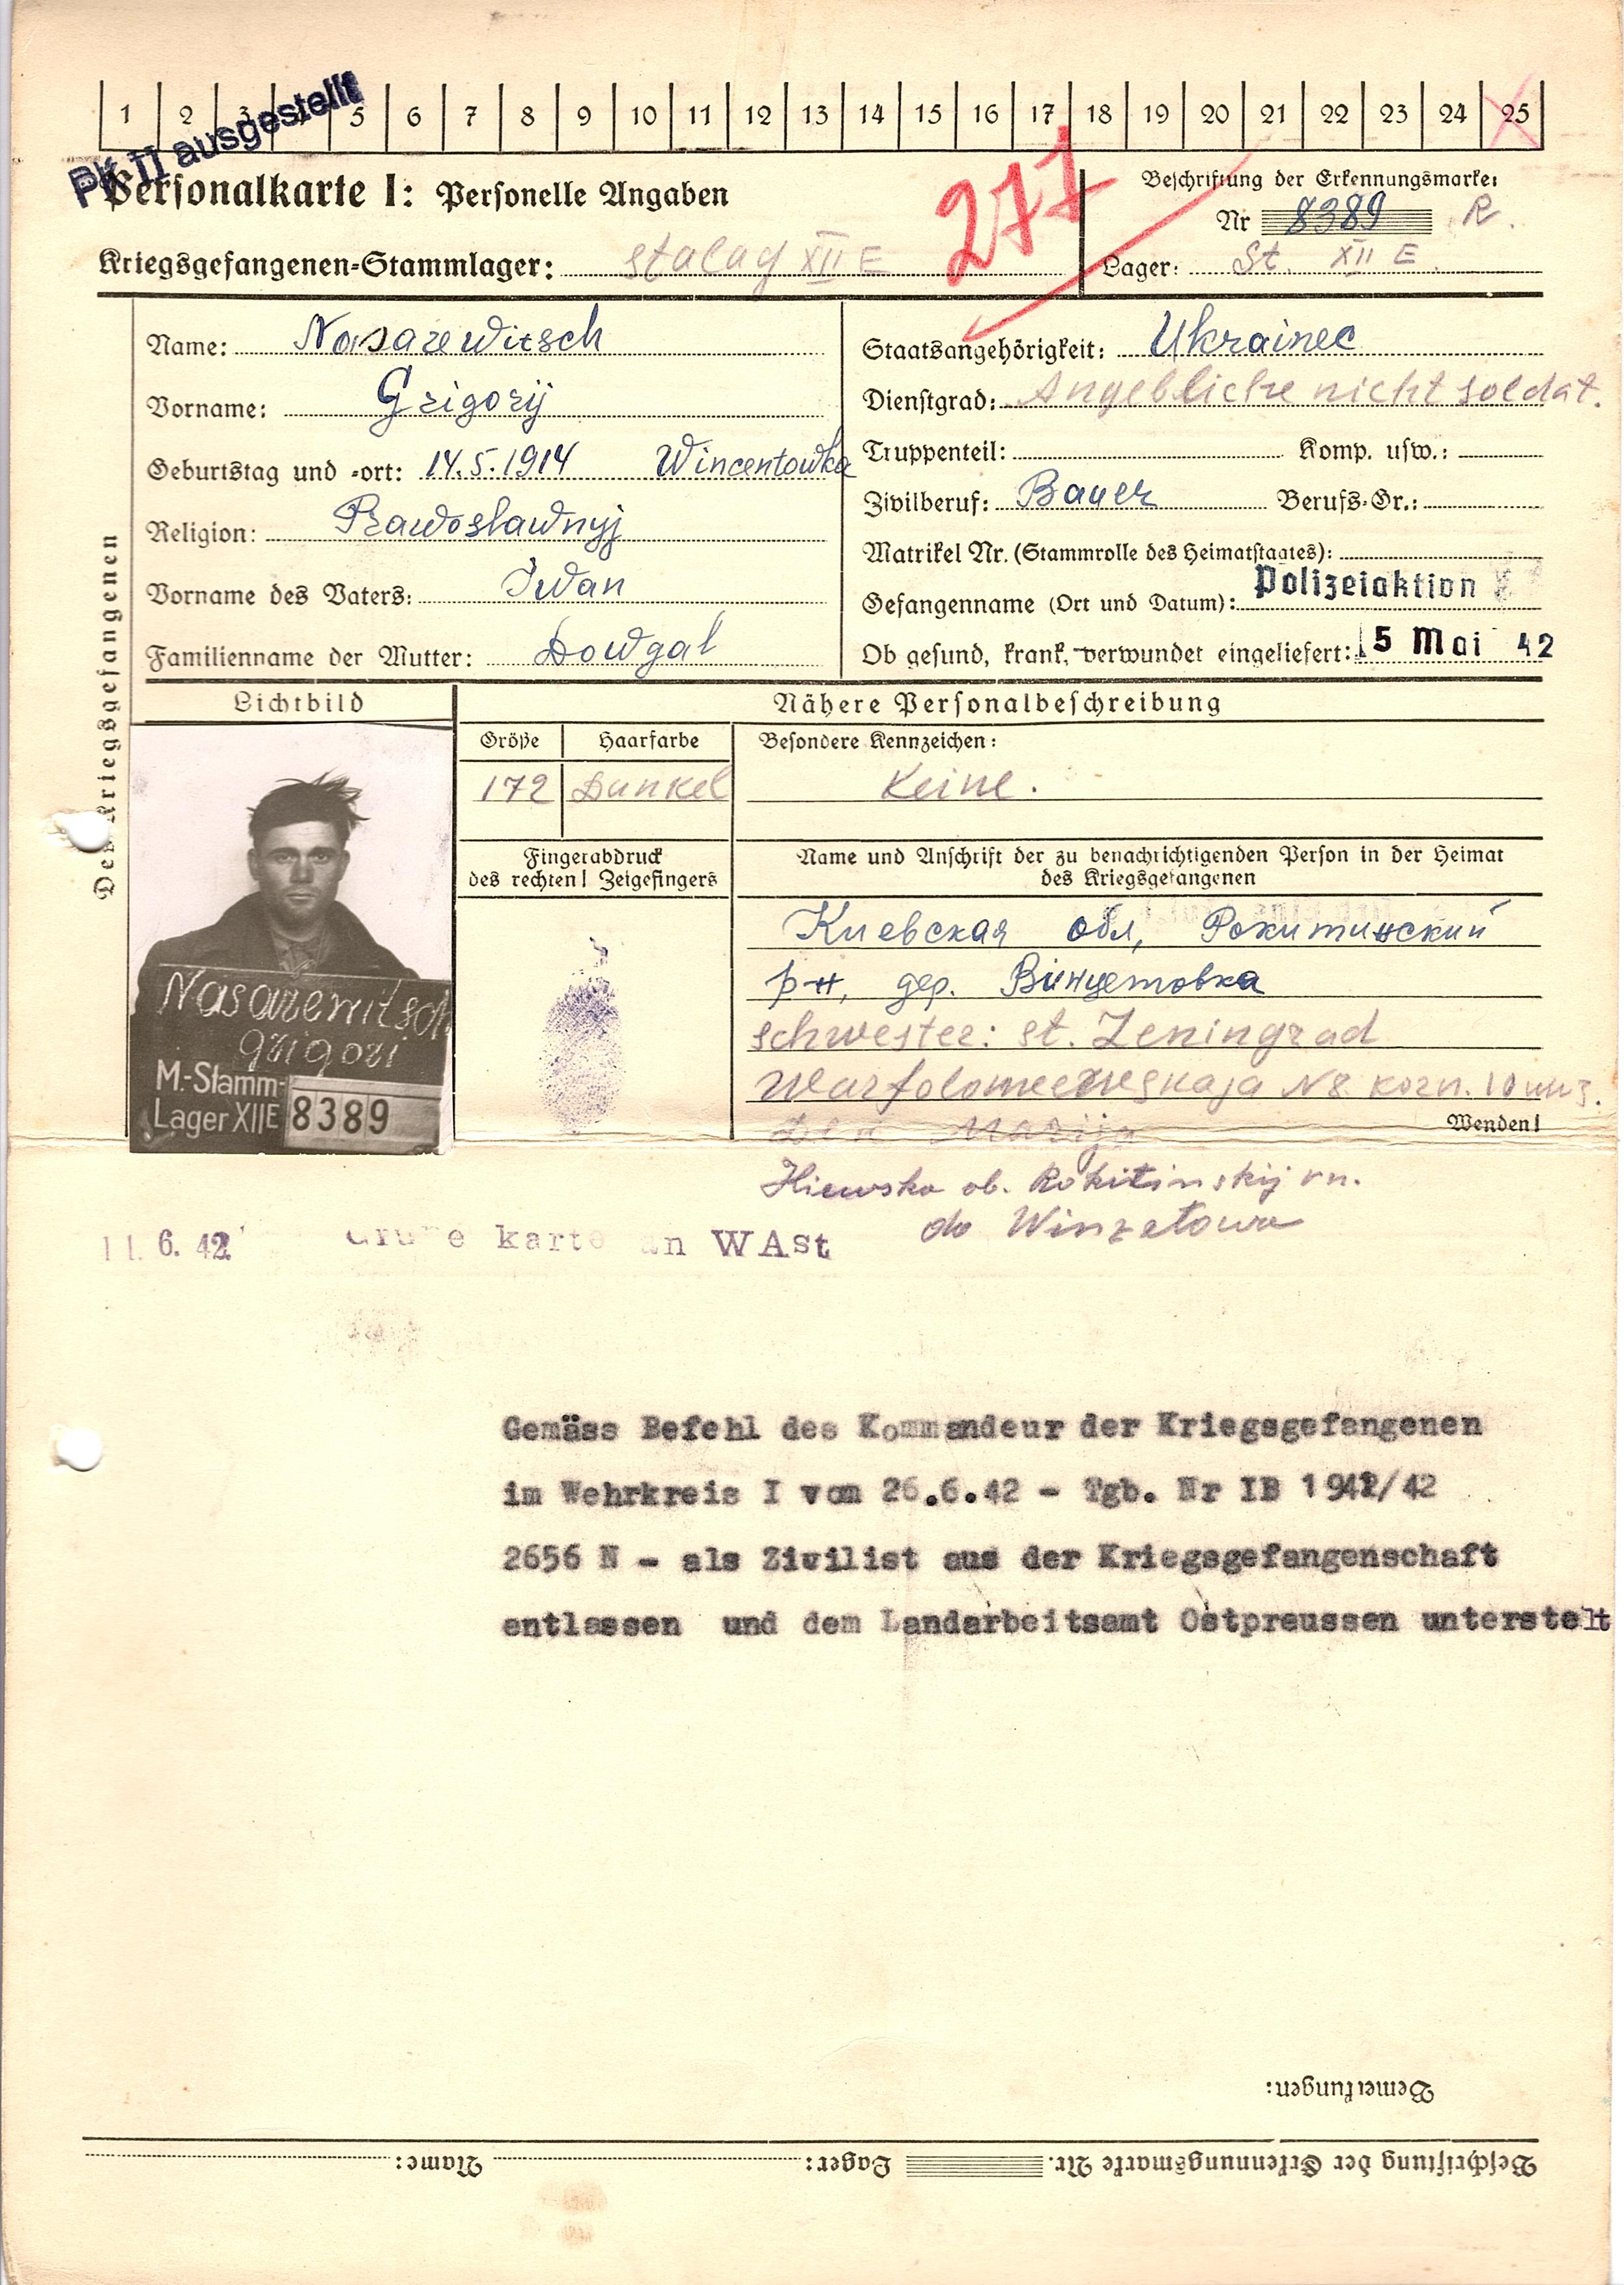 1 2 3 4 5 6 7 8 9 10 11 12 13 14 15 16 17 18 19 20 21 22 23 24 25
PK II ausgestellt
Personalkarte I: Personelle Angaben
277
Beschriftung der Erkennungsmarke:
Nr 8389 R.
Kriegsgefangenen-Stammlager: Stalag XII E
Lager: St. XII E.
Des Kriegsgefangenen
Name: Nasarewitsch
Vorname: Grigorij
Geburtstag und -ort: 14.5.1914 Wincentowka
Religion: Prawoslawnyj
Vorname des Vaters: Iwan
Familienname der Mutter: Dowgal
Staatsangehörigkeit: Ukrainec
Dienstgrad: Angebliche nicht soldat.
Truppenteil: Komp. usw.:
Zivilberuf: Bauer Berufs-Gr.:
Matrikel Nr. (Stammrolle des Heimatstaates):
Gefangenname (Ort und Datum): Polizeiaktion
Ob gesund, krank, verwundet eingeliefert: 15 Mai 42
Lichtbild
Nähere Personalbeschreibung
Größe Haarfarbe Besondere Kennzeichen:
172 Dunkel Keine.
Fingerabdruck
des rechten! Zeigefingers
Name und Anschrift der zu benachrichtigenden Person in der Heimat
des Kriegsgefangenen
Киевская обл, Рокитинский
р-н, дер. Винцетовка
schwester: st. Leningrad
Warfolomeewskaja N8 korn. 10
Marija
Wenden!
Kiewska ob. Rokitinskij rn.
do Winzetowa
Nasarewitsch
grigori
M.-Stamm-
Lager XIIE 8389
11. 6. 42 Grüne karte an WASt
Gemäss Befehl des Kommandeur der Kriegsgefangenen
im Wehrkreis I vom 26.6.42 - Tgb. Nr IB 1942/42
2656 N - als Zivilist aus der Kriegsgefangenschaft
entlassen und dem Landarbeitsamt Ostpreussen unterstelt
Bemerkungen:
Beschriftung der Erkennungsmarke Nr. Lager: Name: